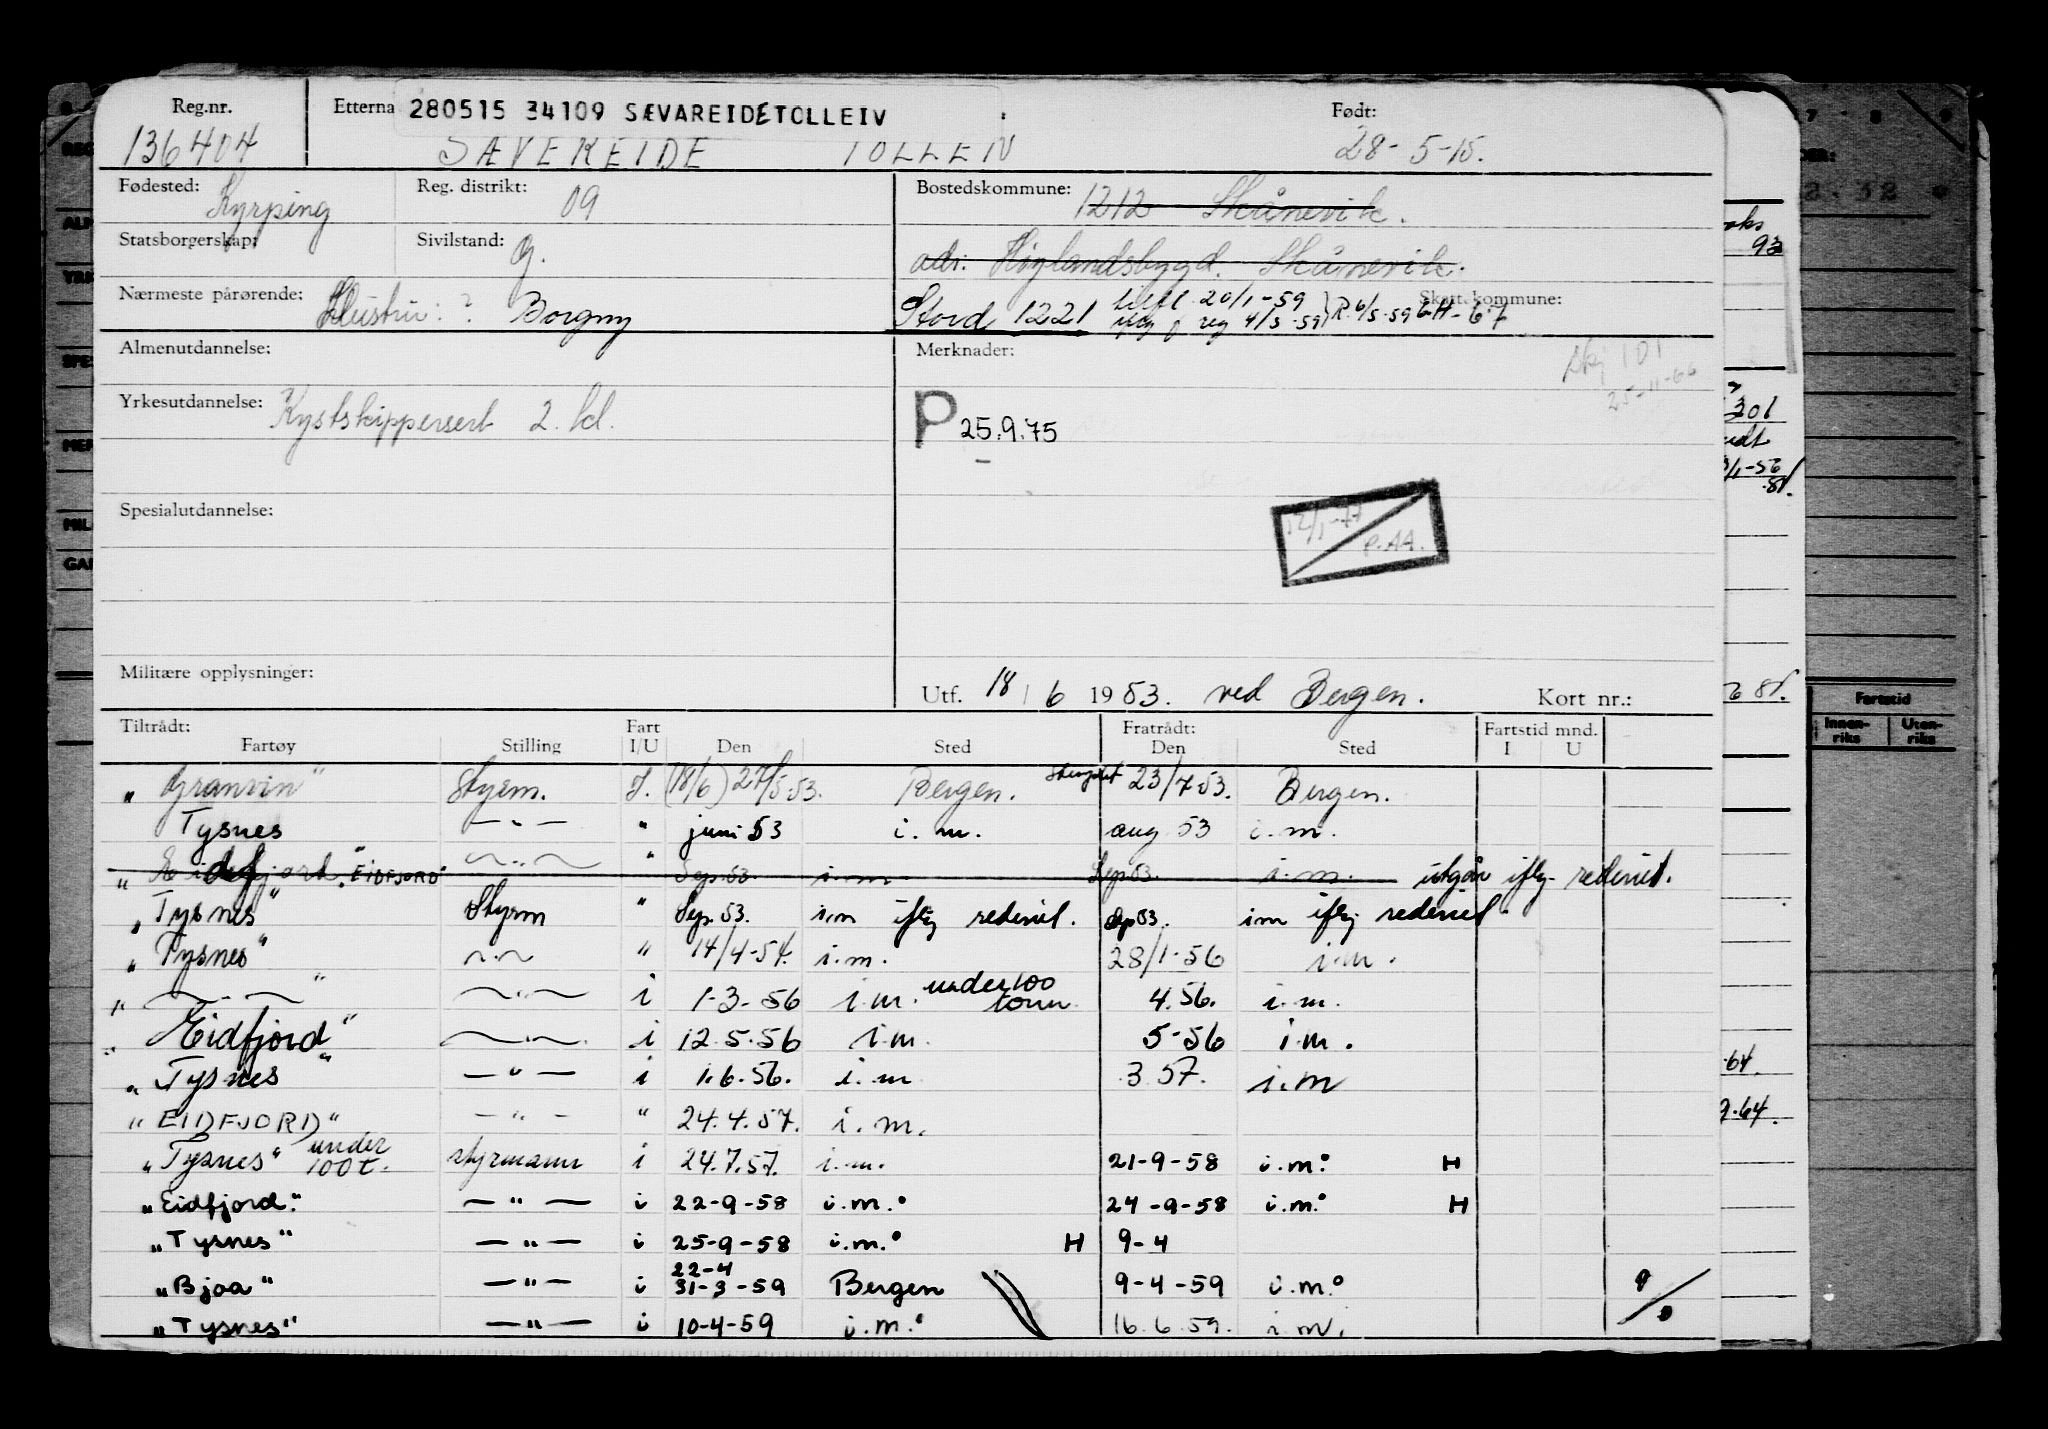 Reg.nr. Etterna 280515 34109 SÆVAREIDETOLLEIV Født:
136404 SÆVEREIDE TOLLEIV 28-5-15.
Fødested: Kyrping Reg. distrikt: 09 Bostedskommune: 1212 Skånevik.
Statsborgerskap: Sivilstand: g. adr. Høylandsbygd. Skånevik.
Nærmeste pårørende: Hustru: ? Borgny Stord 1221 20/1-59 reg 4/5-59 R. 6/5-59 Skattekommune:
Almenutdannelse: Merknader:
25-11-66
Yrkesutdannelse: Kystskippersert 2. kl. P 25.9.75
Spesialutdannelse:
12/1-77
P.AA.
Militære opplysninger: Utf. 18/6 1953. ved Bergen. Kort nr.:
Tiltrådt: Fart Fratrådt: Fartstid mnd.
Fartøy Stilling I/U Den Sted Den Sted I U
"Granvin" Styrm. I. (18/6) 27/5-53. Bergen. 23/7-53. Bergen.
Tysnes — " — " juni 53 i. m. aug 53 i. m.
"Eidfjord "EIDFJORD" — " — " Sep. 53. i.m Sep 53. i.m. utgår iflg. rederiet.
"Tysnes" Styrm " Sep. 53. i.m iflg rederiet. Sep 53. i m iflg rederiet.
"Tysnes" — " — " 14/4-54. i.m. 28/1-56 i.m.
" — " — " — " — i 1-3-56 i.m. under 100 tonn 4.56. i. m.
"Eidfjord" — " — i 12.5.56 i.m. 5-56 i.m.
"Tysnes" — " — i 1.6.56. i. m 3 57. i.m
"EIDFJORD" — " — " 24.4.57. i.m.
"Tysnes" under 100 t. styrmann i 24.7.57. i.m. 21-9-58 i.m. H
"Eidfjord" — " — i 22-9-58 i.m. 24-9-58 i.m. H
"Tysnes" — " — i 25-9-58 i.m. H 9-4
22-4
"Bjoa" — " — i 31-3-59 Bergen 9-4-59 i.m.
"Tysnes" — " — i 10-4-59 i.m. 16.6.59. i.m.
Fartstid
Innen-riks Uten-riks